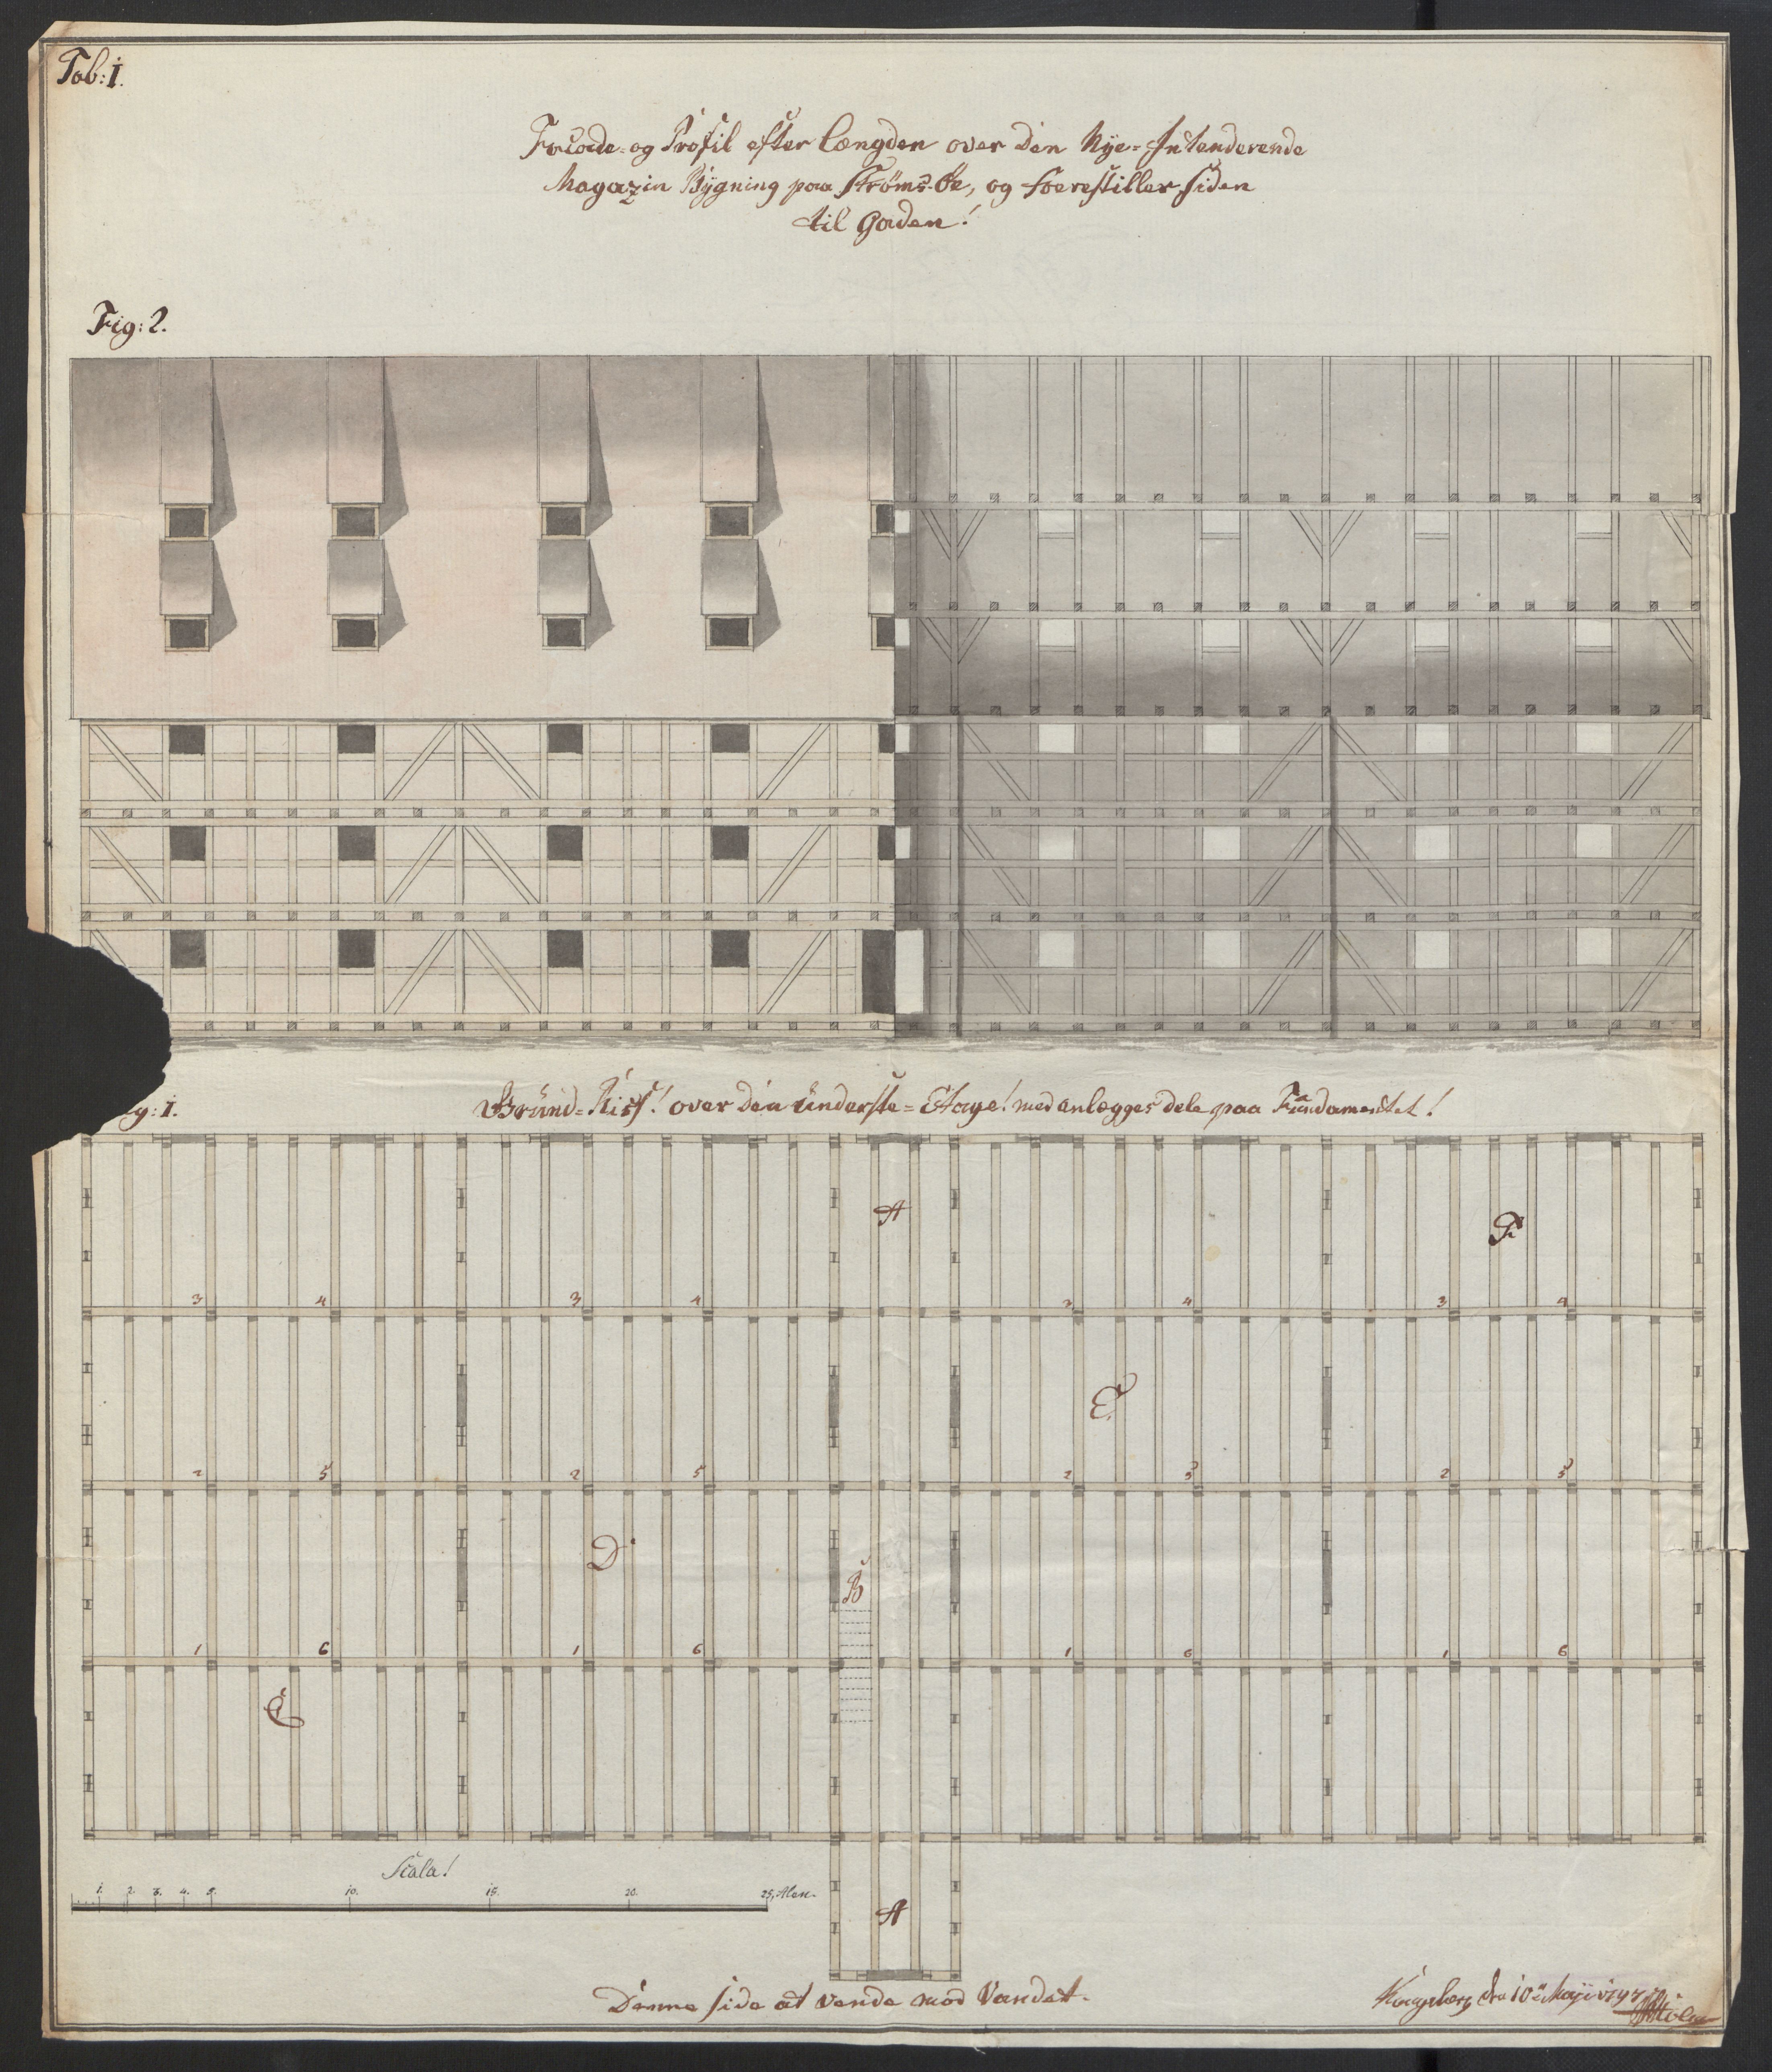 Tab: I.
Facade- og Profil efter længden over den Nye- Intenderende
Magazin Bÿgning paa Strøms-Öe, og foerestiller, Siden
til Gaden!
Fig: 2.
g: I.
Grund- Riss! over den Underste- Etage! med anlægges dele paa Fundamentet!
A
F
3 4 3 4 3 4 3 4
E
2 5 2 5 2 5 2 5
D
B
1 6 1 6 1 6 1 6
C
Scala!
1. 2. 3. 4. 5. 10. 15. 20. 25, Alen.
A
Denne side at vende mod Vandet.
Kongsberg den 10